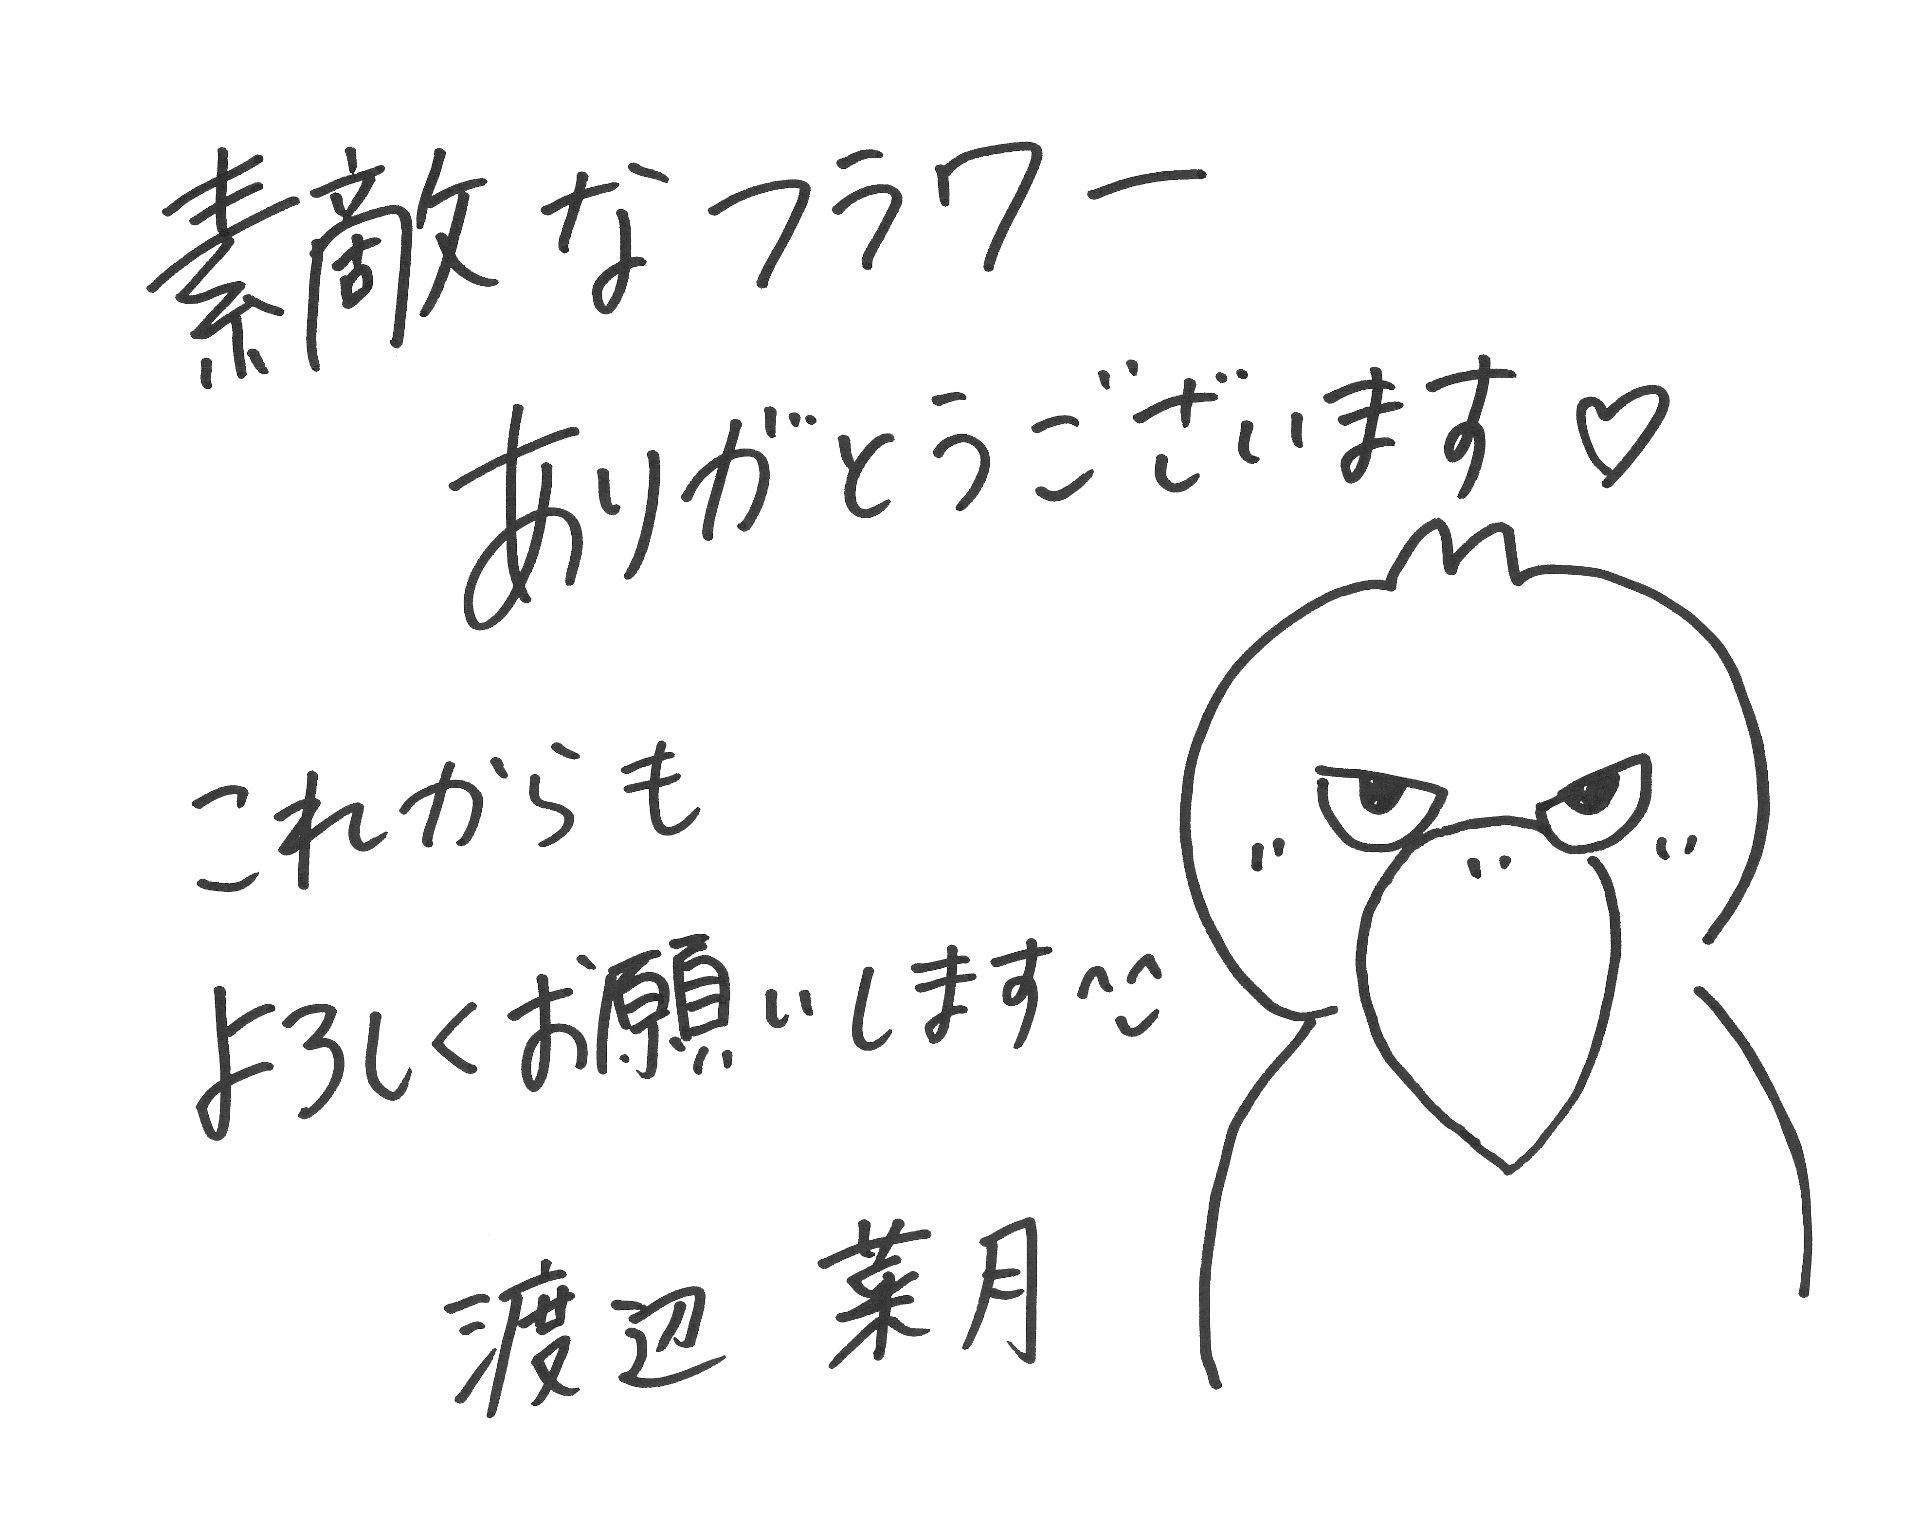 素敵なフラワー
ありがとうございます♡
これからも
よろしくお願いします^^
渡辺 菜月